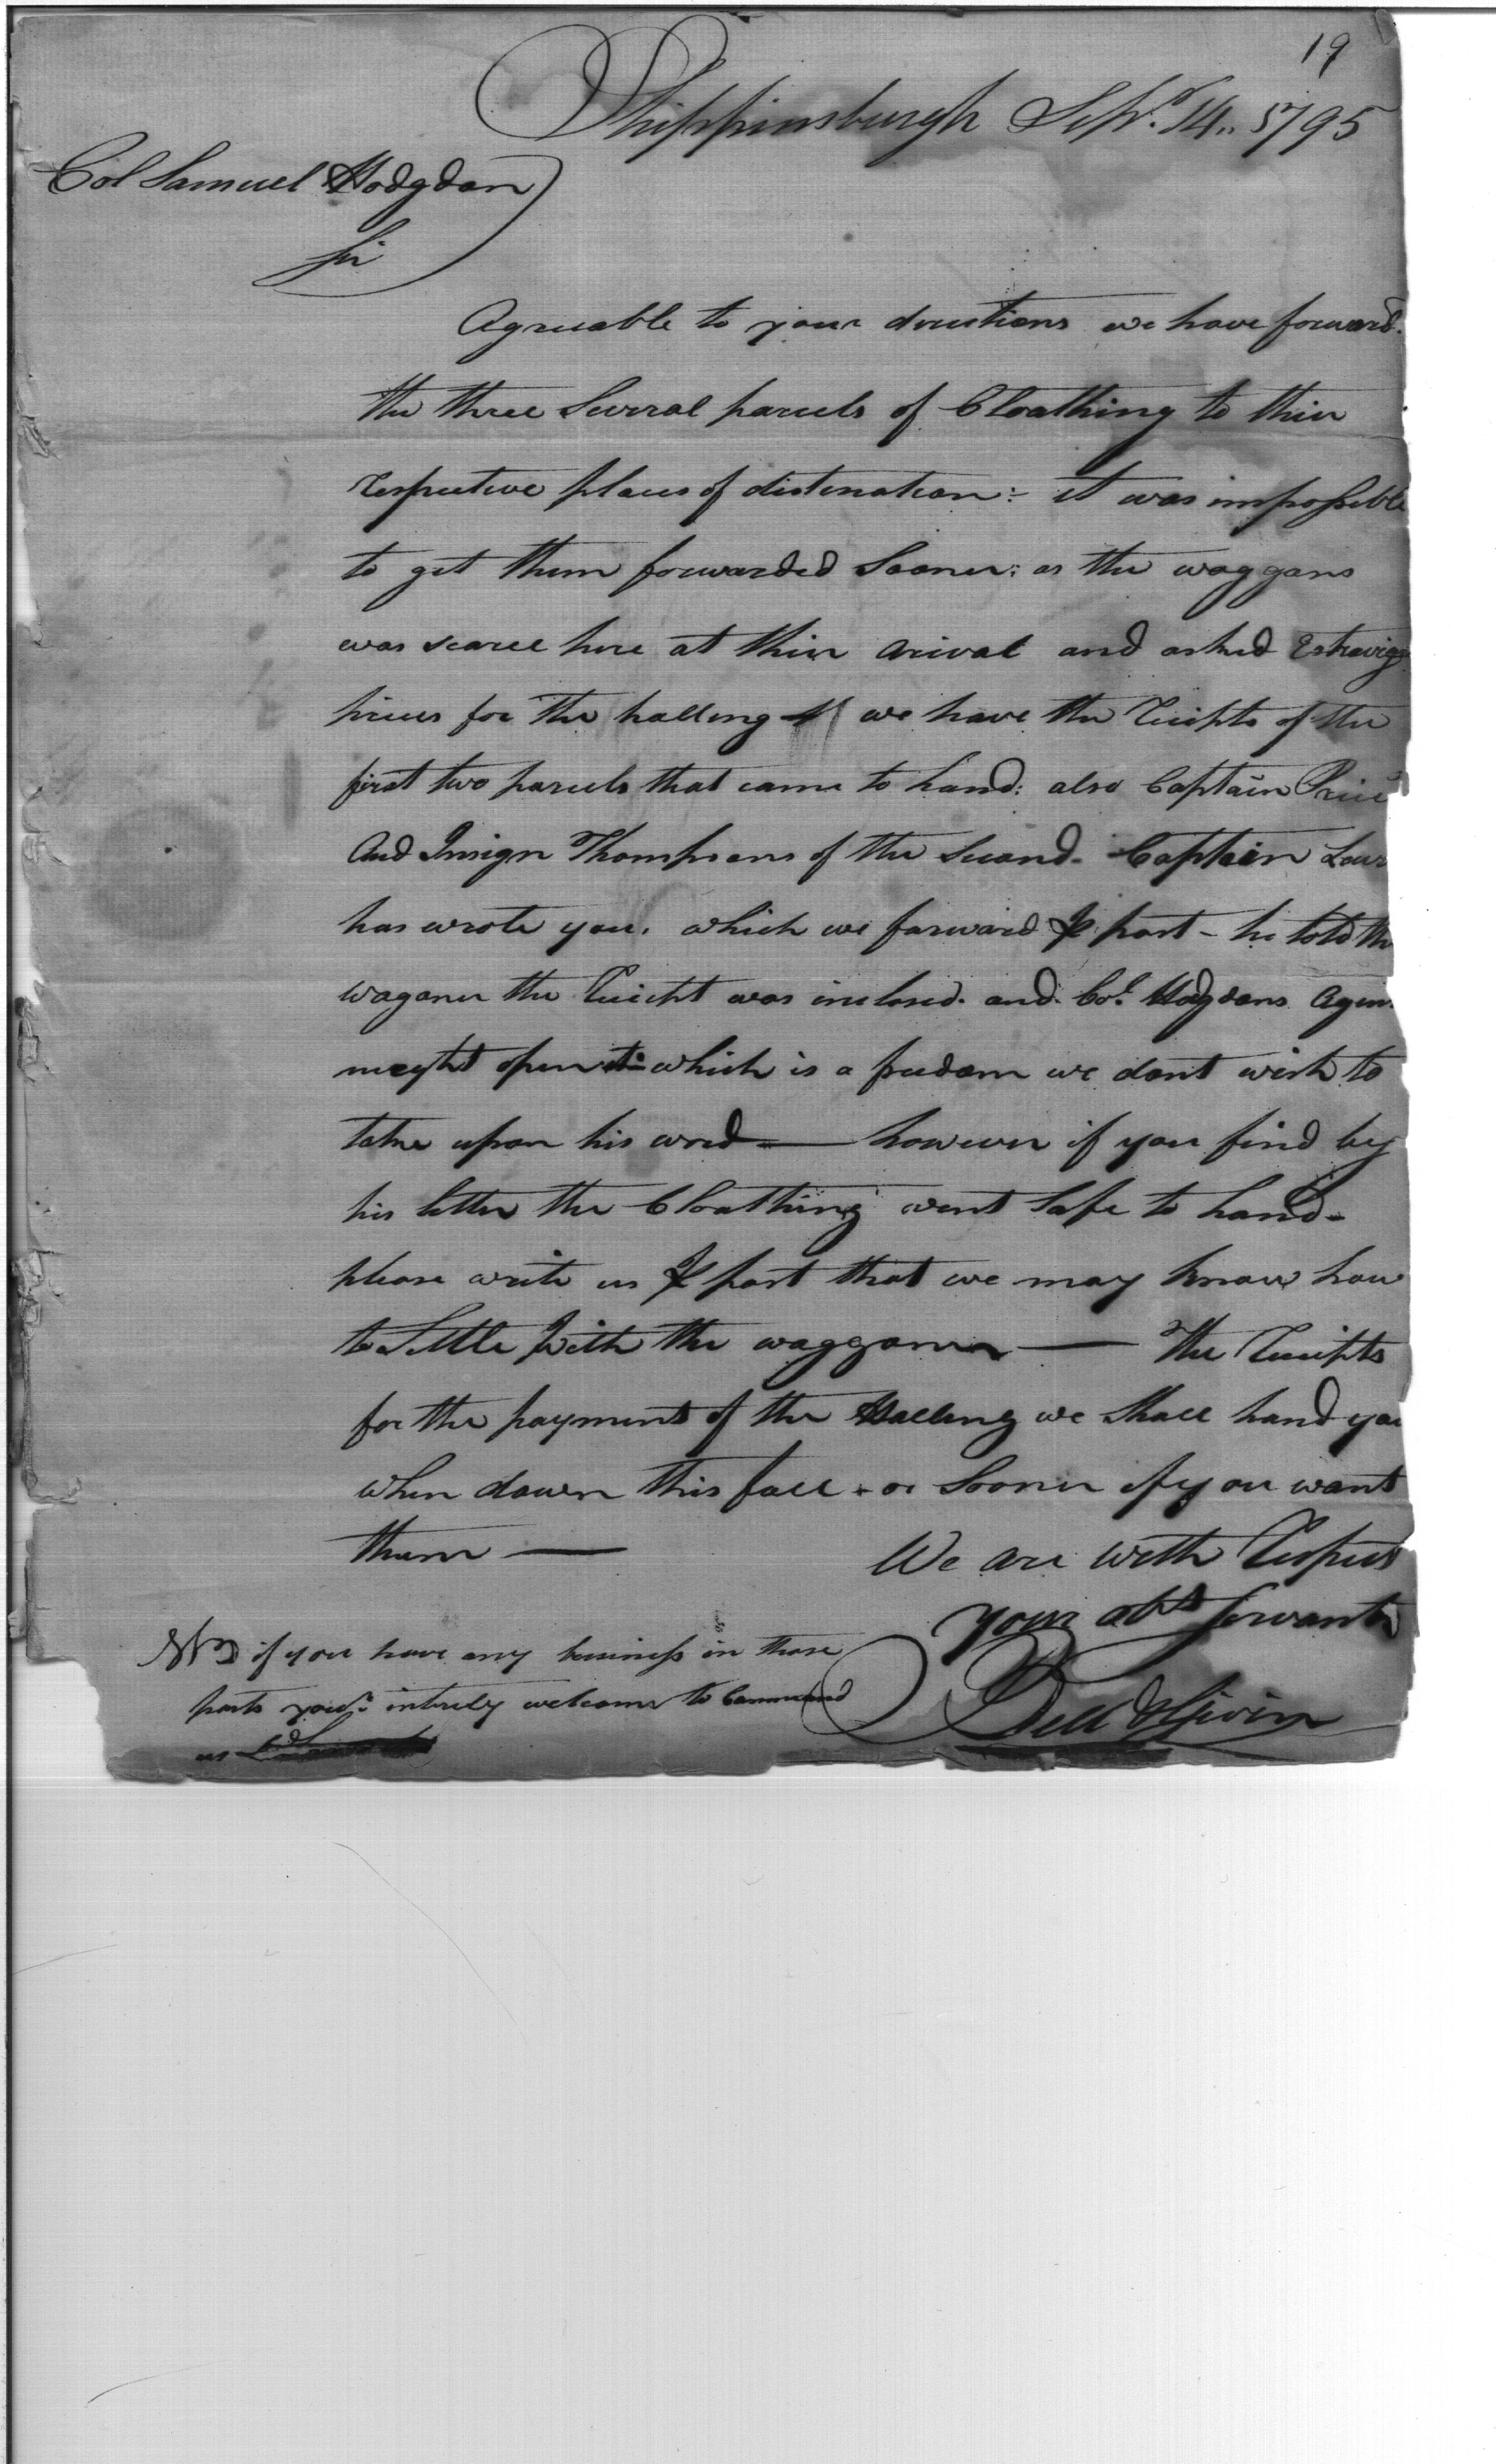 19
Shippinsburgh Sepr. 14.. 1795
Col Samuel Hodgdon
Sir
Agreeable to your directions we have forward.
the three Several parcels of Cloathing to their
respective places of distenation:- it was impossible
to get them forwarded Sooner: as the waggons
was scarce here at their arival and asked Extravig
prices for the halling we have the Receipts of the
first two parcels that came to hand: also Captain Price
And Insign Thompsons of the Second- Captain Lew
has wrote you. which we forward ⅌ post - he told th
waganer the Receipt was inclosed. and Col. Hodgdons Agen
meght open it- which is a freedom we dont wish to
take upon his word — however if you find by
his letter the Cloathing went Safe to hand-
please write us ⅌ post that we may know how
to Settle With the waggoner — The Receipts
for the payment of the Halling we Shall hand you
when down this fall - or Sooner if you want
them —
We are with Respect
Your obt Servants
NB if you have any business in these
parts your intirely welcome to Command
us
Bell &